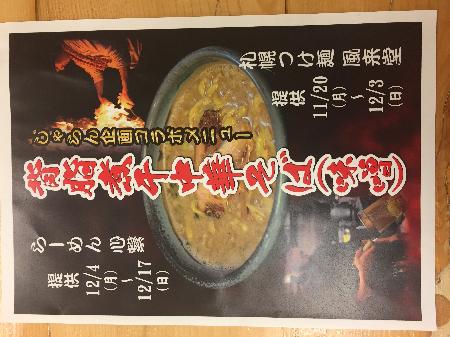 札幌つけ麺 風来堂
提供
11/20(月)
〜
12/3(日)
企画コラボメニュー
煮干中華そば(味噌)
らーめん 心繋
提供
12/4(月)
〜
12/17(日)